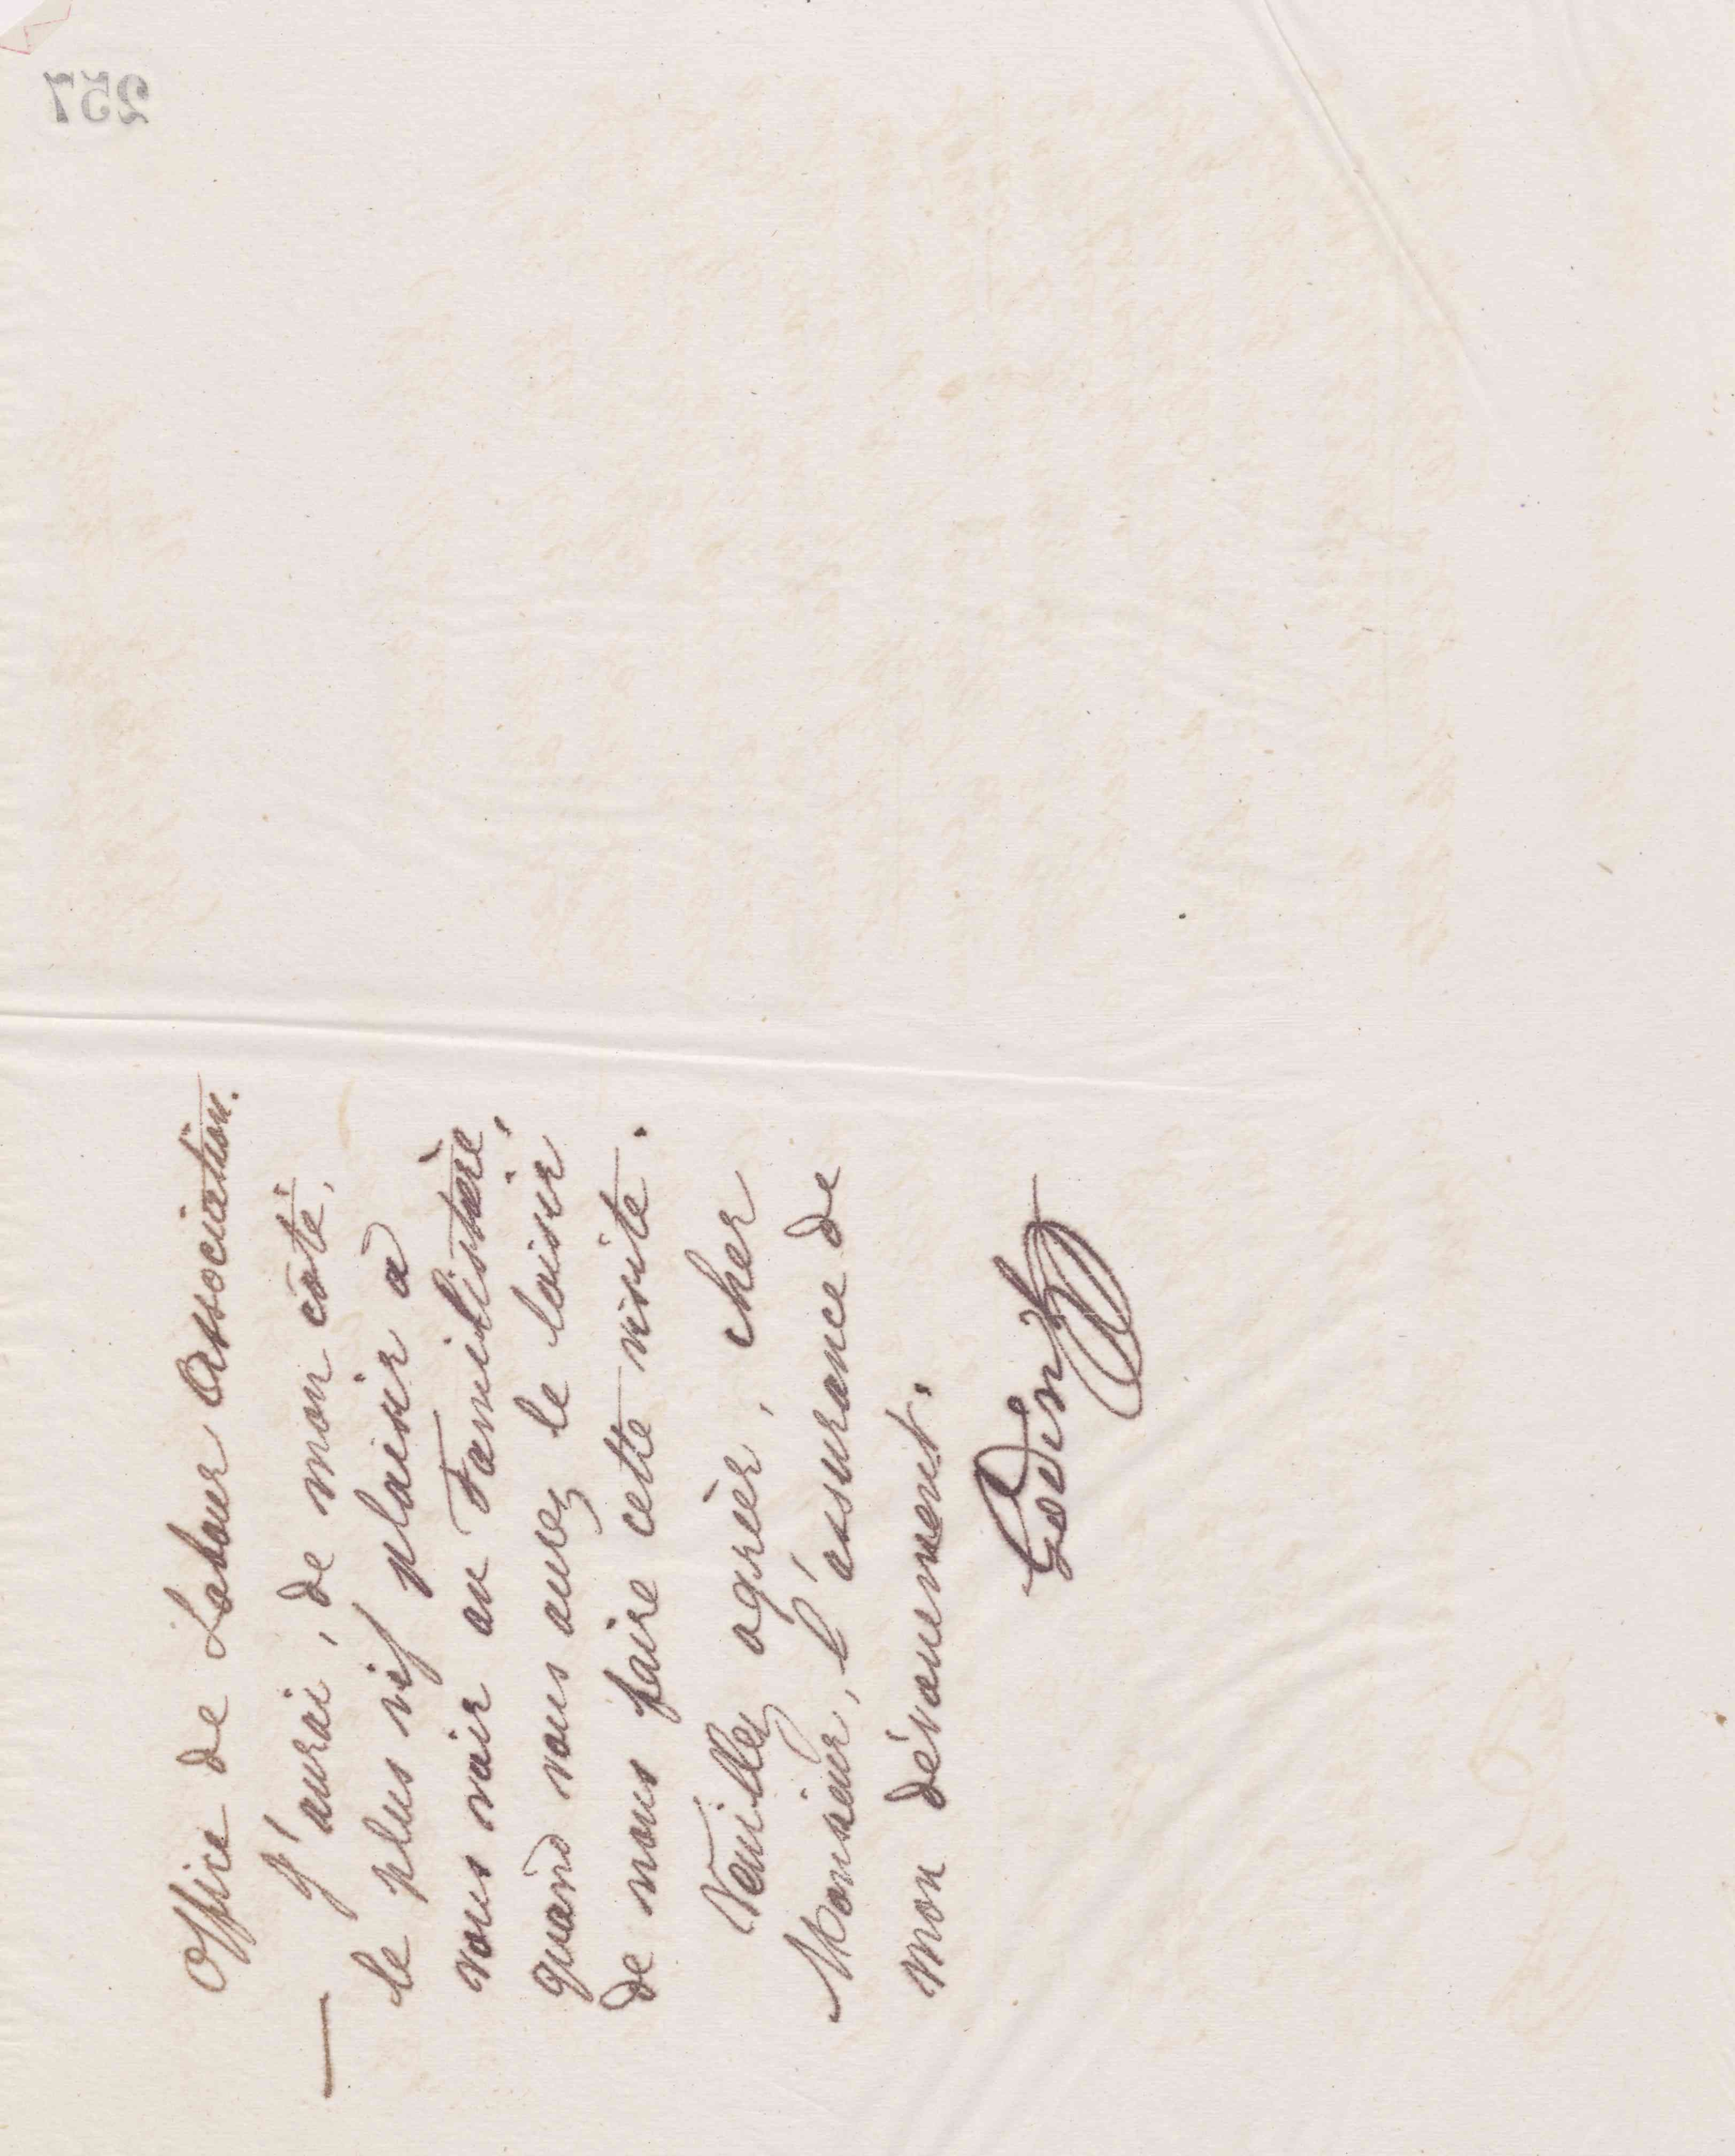 257
office de Labour Association.
— J'aurai, de mon côté,
le plus vif plaisir à
vous voir au Familistère,
quand vous aurez le loisir
de nous faire cette visite.
Veuillez agréer, cher
Monsieur, l'assurance de
mon dévouement.
Godin